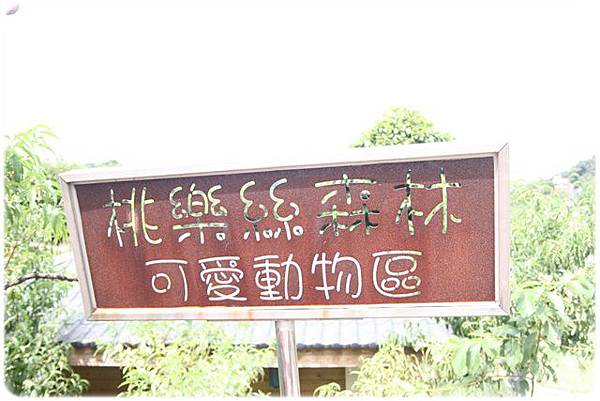 桃樂絲森林
可愛動物區